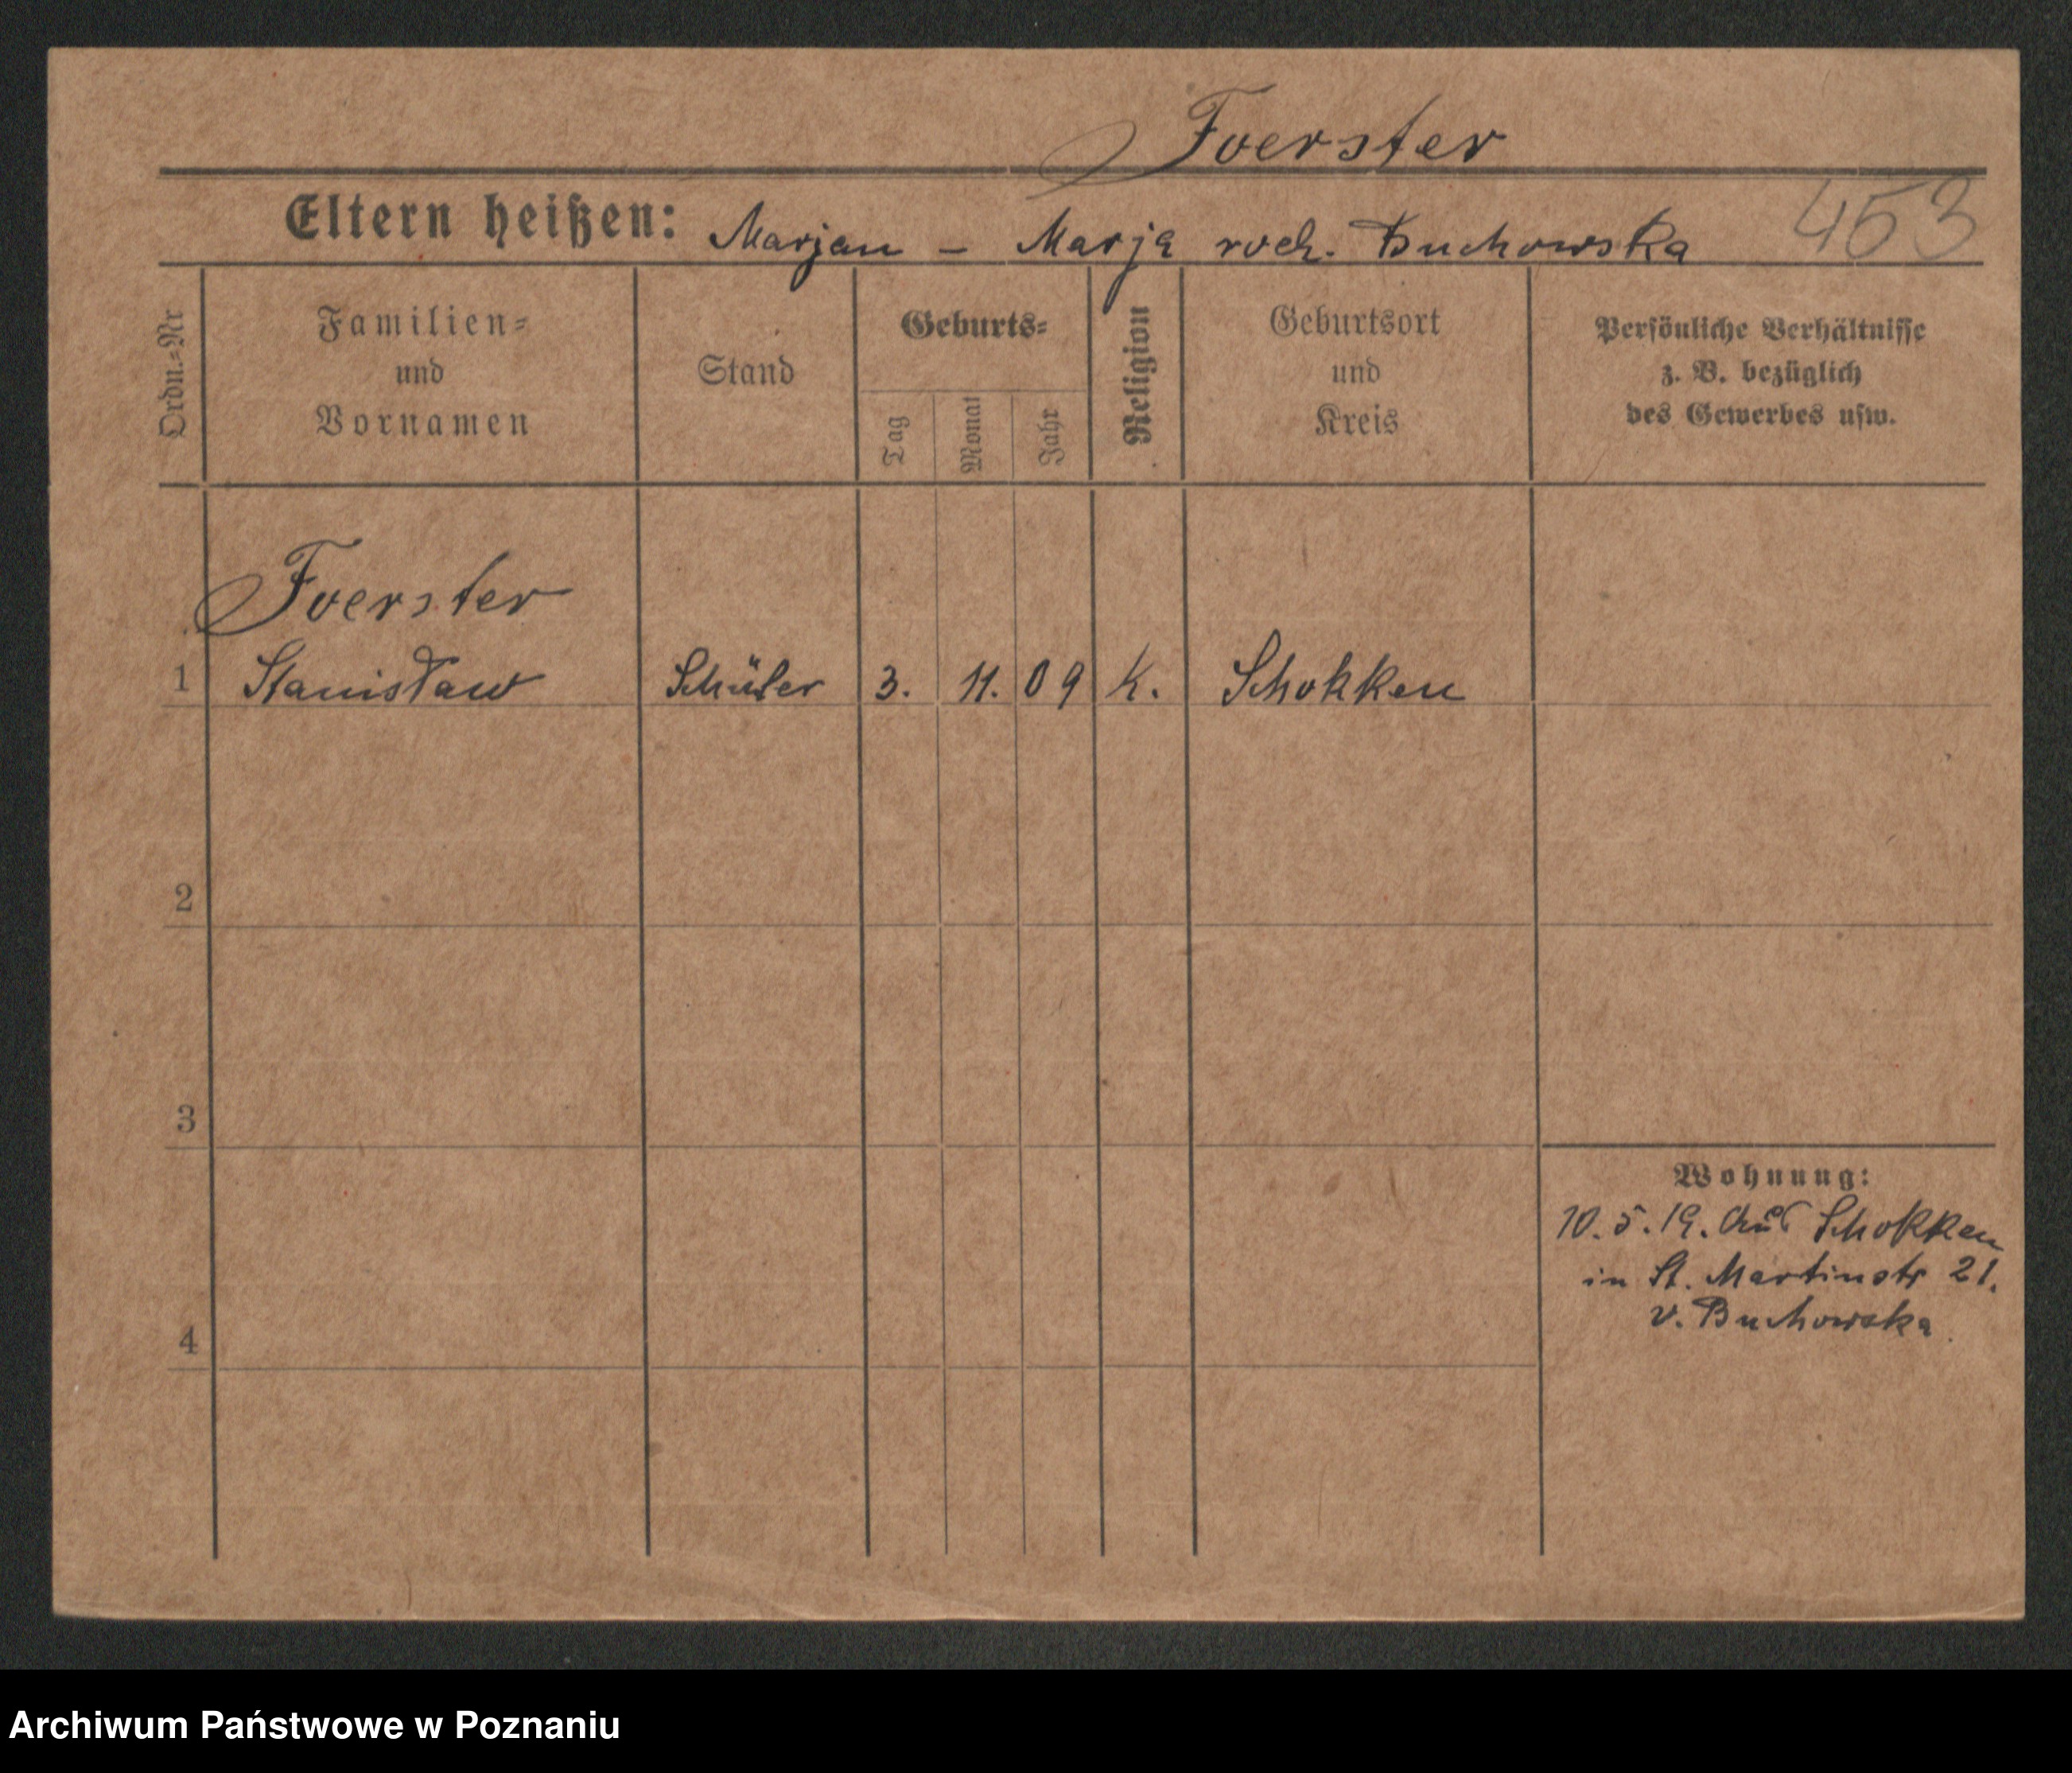 Foerster
Eltern heißen: Marjan – Marja rodz. Buchowska 453
Ordn.-Nr
Familien-
und
Vornamen
Stand
Geburts-
Tag
Monat
Jahr
Religion
Geburtsort
und
Kreis
Persönliche Verhältnisse
z. B. bezüglich
des Gewerbes usw.
Foerster
1 Stanisław Schüler 3. 11. 09 K. Schokken
2
3
4
Wohnung:
10.5.19. aus Schokken
in St. Martinstr 21.
v. Buchowska.
Archiwum Państwowe w Poznaniu